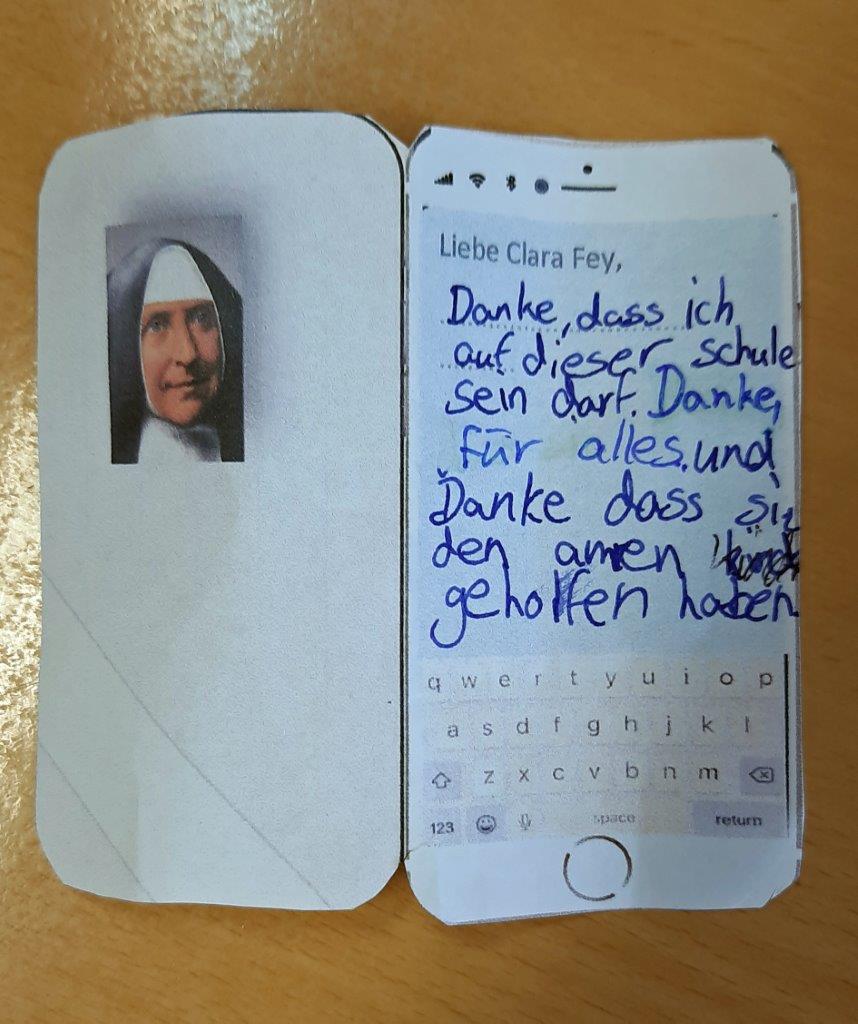 Liebe Clara Fey,
Danke, dass ich
auf dieser schule
sein darf. Danke,
für alles. und
Danke dass sie
den amen
geholfen haben.
q w e r t y u i o p
a s d f g h j k l
z x c v b n m
123 space return